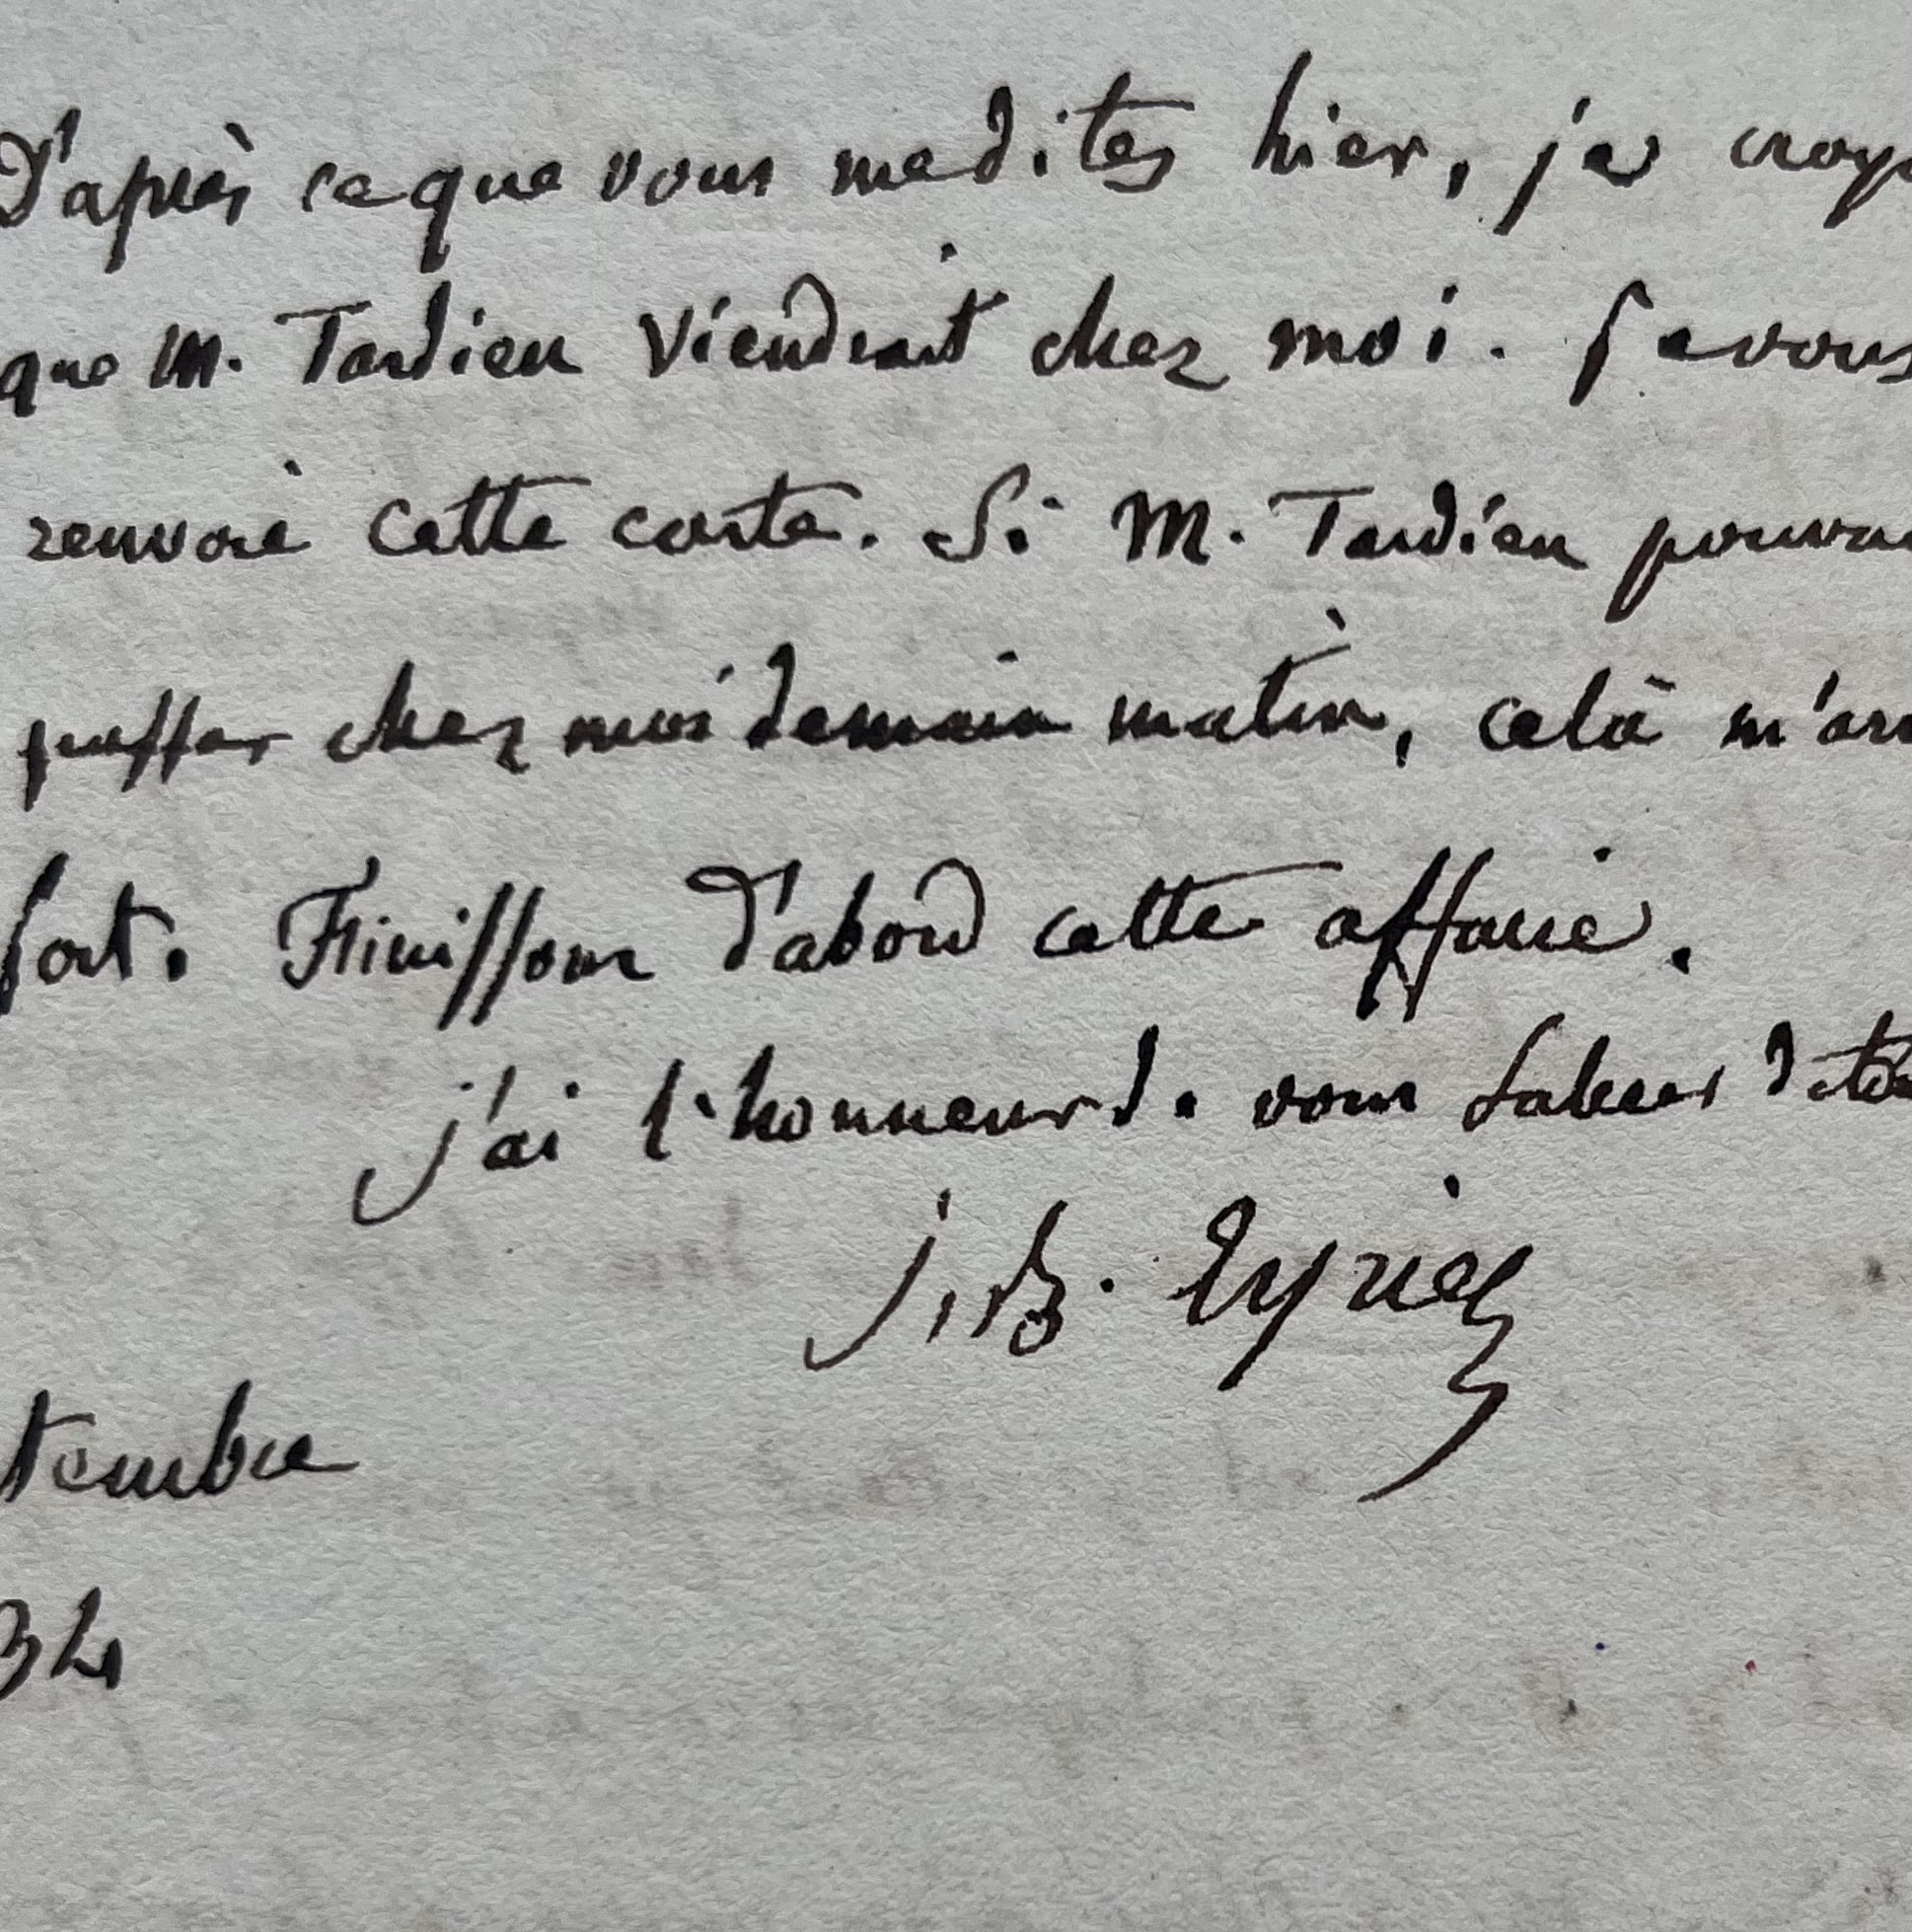 D'après ce que vous me dites hier, je croya
que M. Tardieu viendrait chez moi. Je vous
renvoie cette carte. Si M. Tardieu pouvai
passer chez moi demain matin, celà m'arr
fort. Finissons d'abord cette affaire.
j'ai l'honneur de vous saluer
J. B. Eyriès
tembre
34